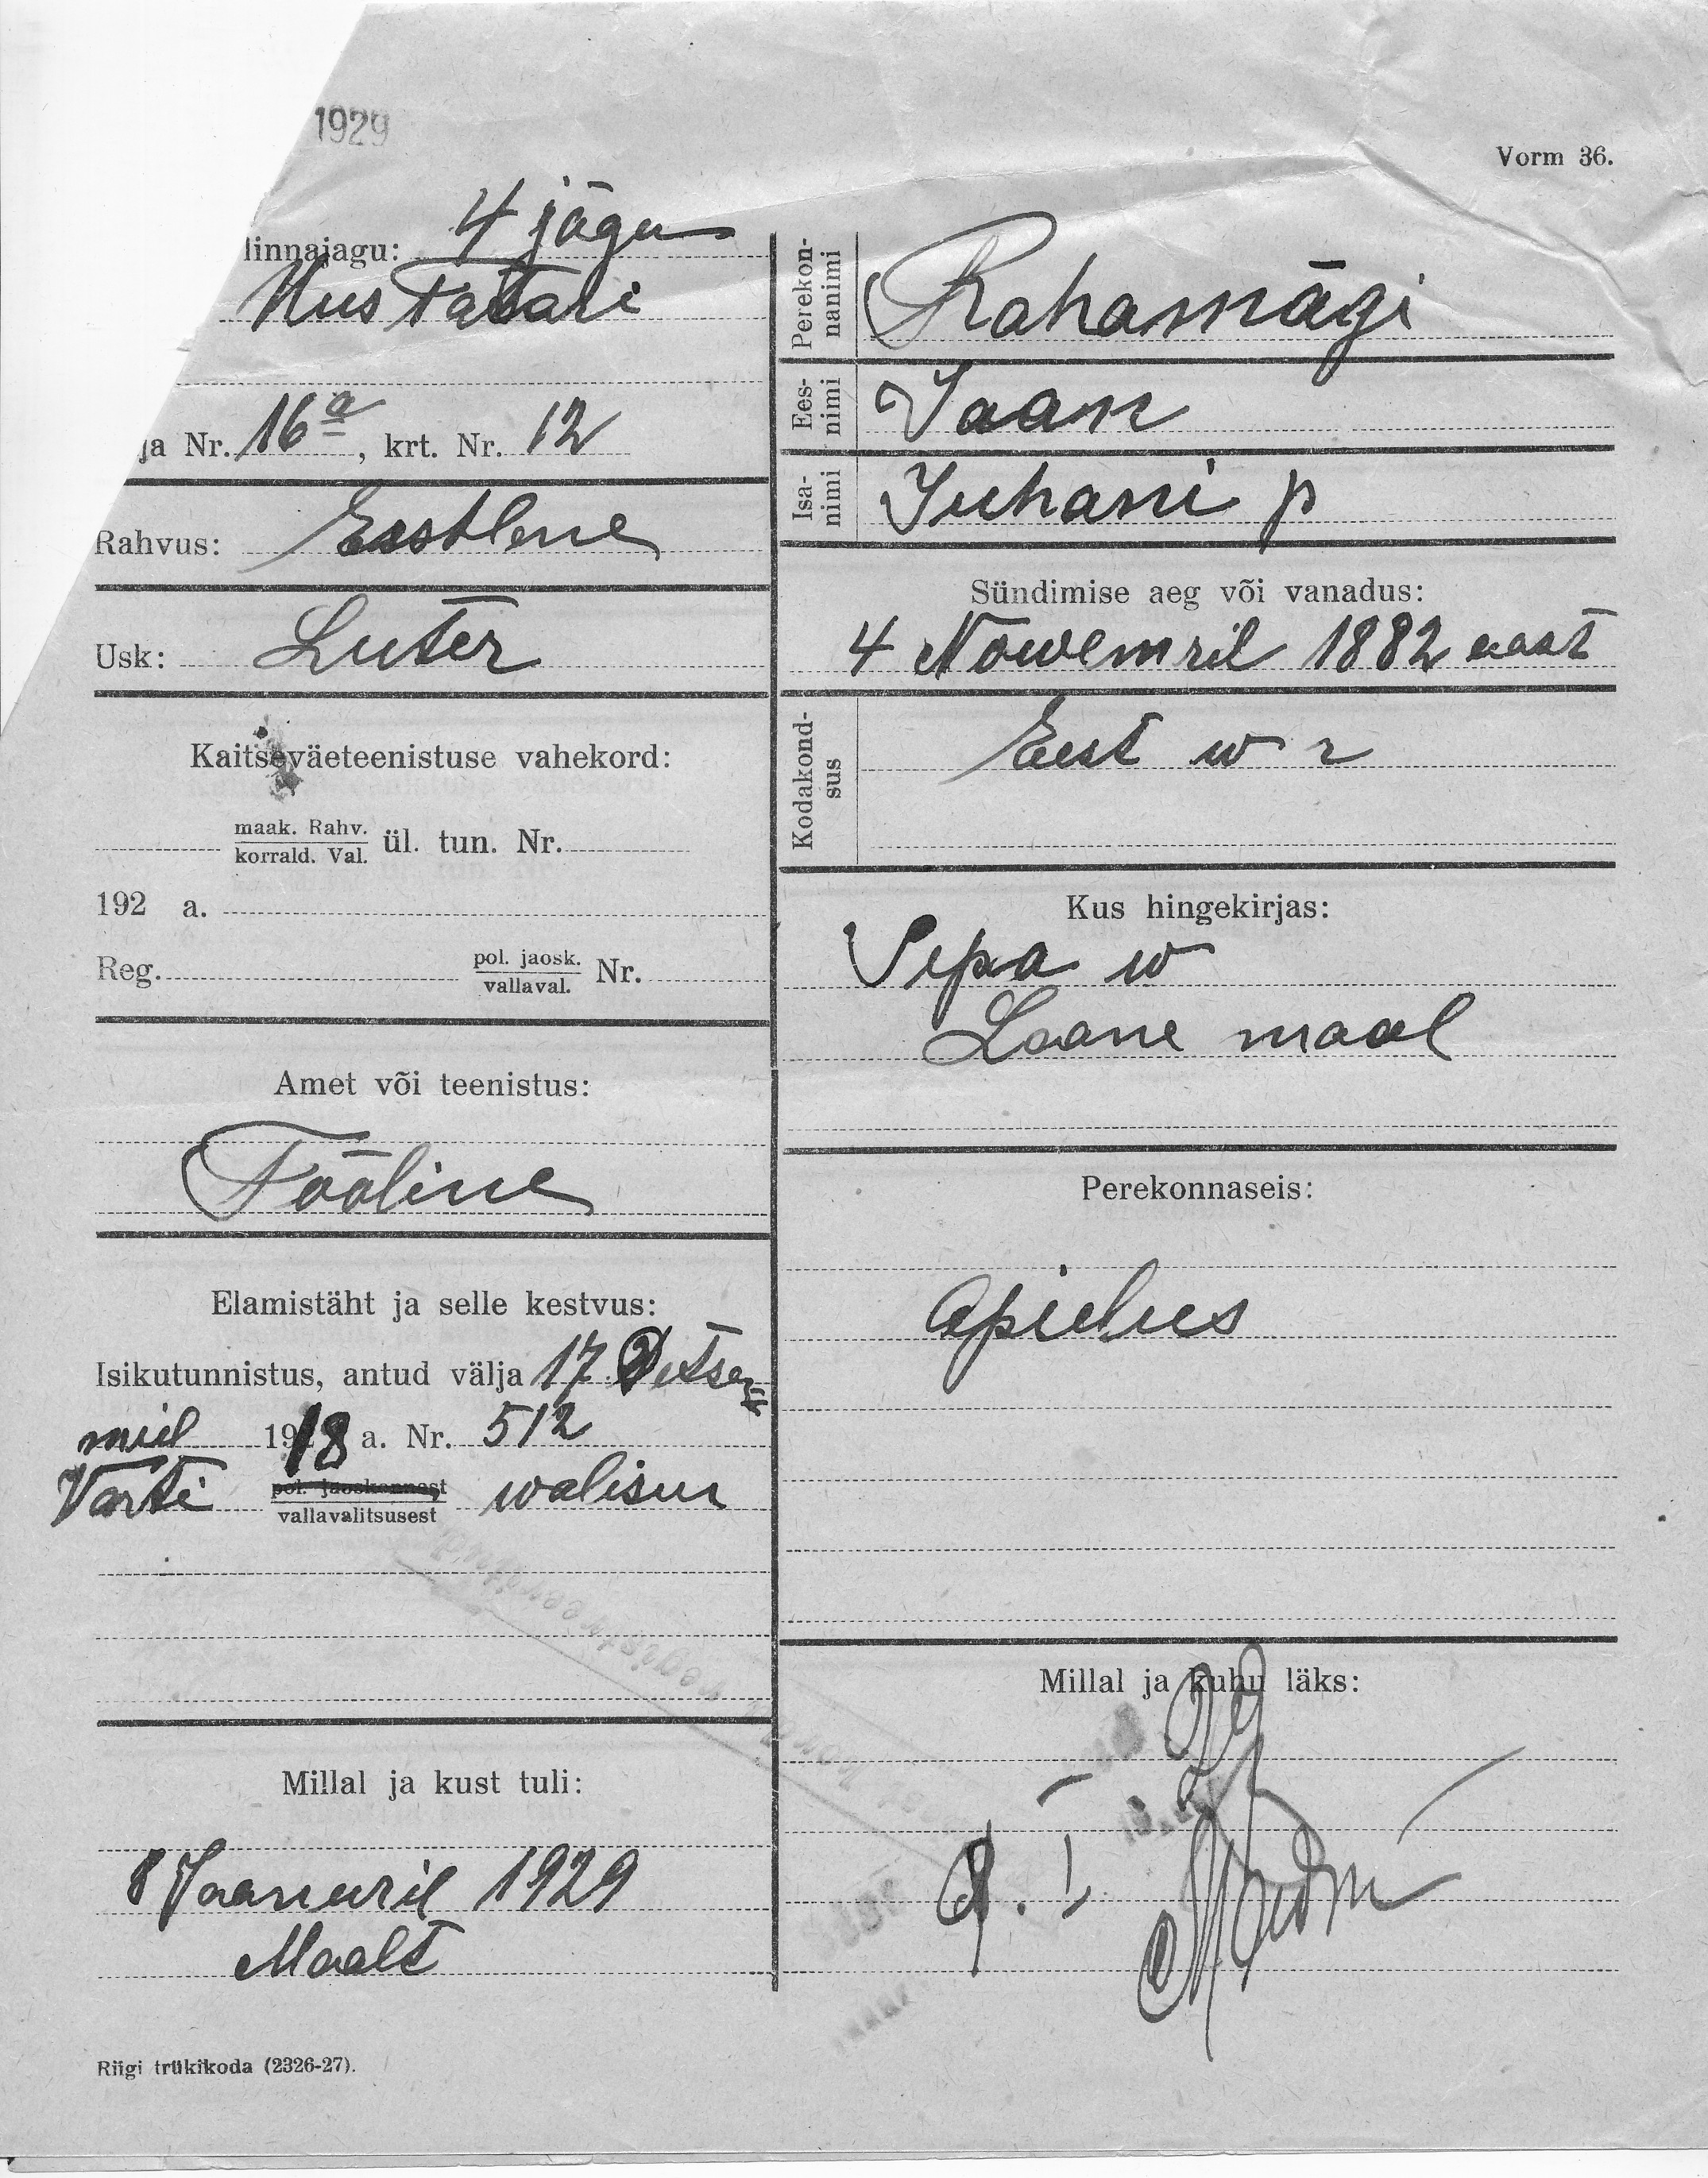 1929
Vorm 36.
linnajagu: 4 jägu
Uus Tatari
ja Nr. 16a, krt. Nr. 12
Rahvus: Eestlene
Usk: Luter
Kaitseväeteenistuse vahekord:
maak. Rahv.
korrald. Val. ül. tun. Nr.
192 a.
Reg. pol. jaosk.
vallaval. Nr.
Amet või teenistus:
Tööline
Elamistäht ja selle kestvus:
Isikutunnistus, antud välja 17 Detsem
mril 1918 a. Nr. 512
Varti pol. jaoskonnast walisur
vallavalitsusest
registreeritud
Millal ja kust tuli:
8 Jaanuril 1929
Maalt
Riigi trükikoda (2326-27).
Perekonnanimi
Rahamägi
Eesnimi
Jaan
Isanimi
Juhani p
Sündimise aeg või vanadus:
4 Nowemril 1882 aast
Kodakondsus
Eest w r
Kus hingekirjas:
Sepa w
Laane maal
Perekonnaseis:
apielus
Millal ja kuhu läks: